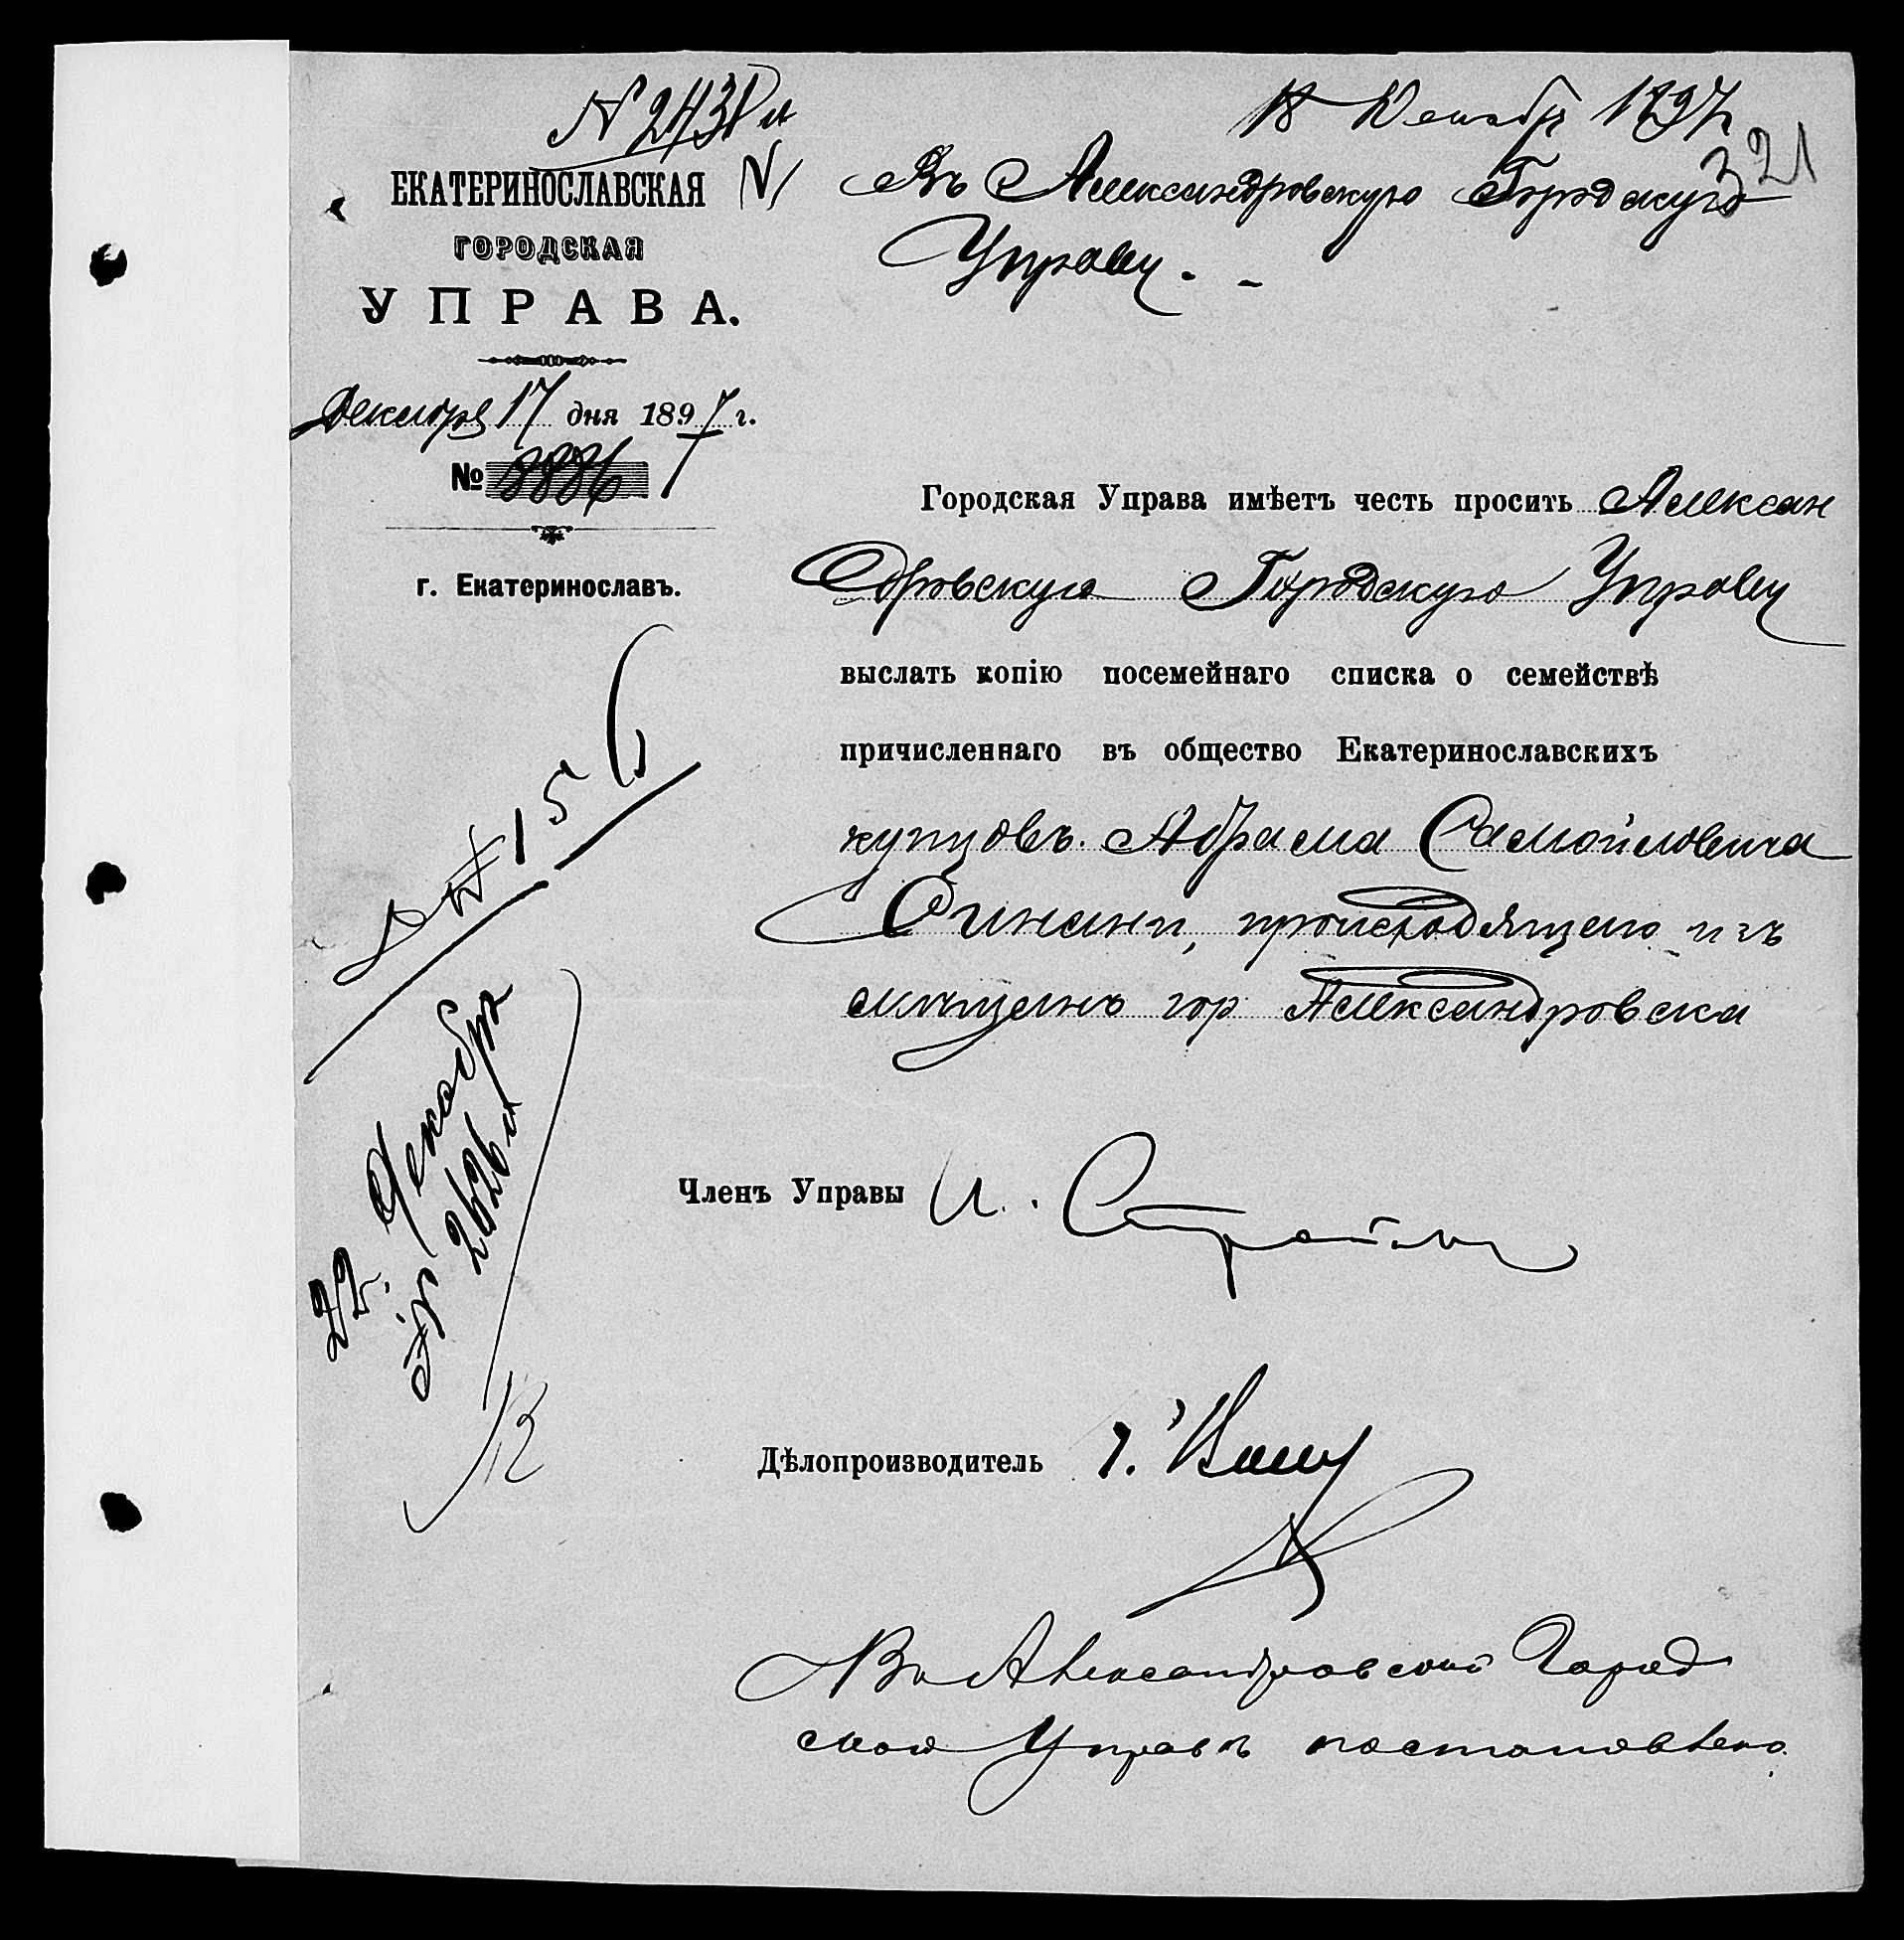 18 Декабр 1897
321
ЕКАТЕРИНОСЛАВСКАЯ
ГОРОДСКАЯ
УПРАВА.
Декабря 17 дня 1897 г.
№
г. Екатеринославъ.
Въ Александровскую Городскую
Управу.
Городская Управа имѣетъ честь просить Алексан
дровскую Городскую Управу
выслать копію посемейнаго списка о семействѣ
причисленнаго въ общество Екатеринославскихъ
купцовъ Абрама Самойловича
Синани, происходящаго изъ
мѣщанъ гор Александровска
№ 156
22 Декабря
№ 2626
Членъ Управы И.
Дѣлопроизводитель
Въ Александровской Город
ской Управѣ постановлено.